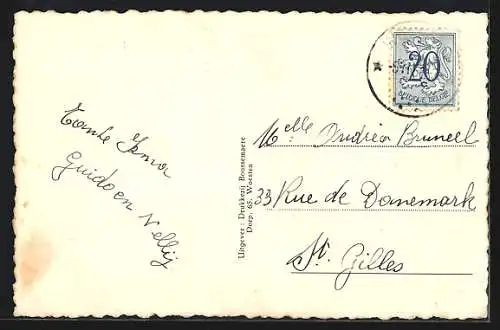 Tante Irma
Guido en Nellij
Uitgever : Drukkerij Boussemaere
Dorp, 65, Woesten
20
BELGIQUE BELGIE
Melle Andréa Bruneel
33 Rue de Danemark
St. Gilles